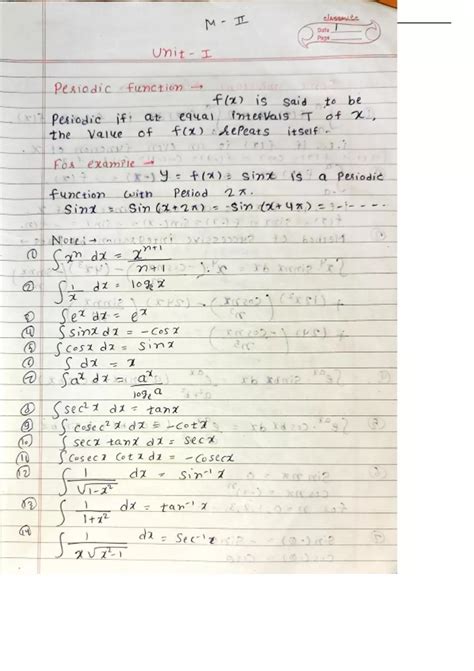 M - II
classmate
Date
Page 1
Unit - I
Periodic function →
f(x) is said to be
Periodic if at equal intervals T of x,
the value of f(x) repeats itself.
For example → y = f(x) = sinx is a Periodic
function with Period 2π.
Sinx = Sin (x+2π) = Sin (x+4π) = - - - - -
Note: →
① ∫xⁿ dx = xⁿ⁺¹/n+1
② ∫ 1/x dx = logₑx
③ ∫eˣ dx = eˣ
④ ∫ sinx dx = -cosx
⑤ ∫ cosx dx = sinx
⑥ ∫ dx = x
⑦ ∫aˣ dx = aˣ/logₑa
⑧ ∫ sec²x dx = tanx
⑨ ∫ cosec²x dx = -cotx
⑩ ∫ secx tanx dx = secx
⑪ ∫ cosecx cotx dx = -cosecx
⑫ ∫ 1/√1-x² dx = sin⁻¹x
⑬ ∫ 1/1+x² dx = tan⁻¹x
⑭ ∫ 1/x√x²-1 dx = Sec⁻¹x